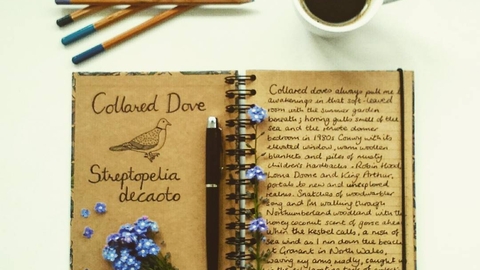 Collared Dove
Streptopelia
decaoto
Collared doves always pull me
awakenings in that soft-leaved
room with the summer garden
beneath; herring gulls, smell of the
sea and the remote dormer
bedroom in 1980s Conwy with its
elevated window, warm woollen
blankets and piles of musty
children's hardbacks - Robin Hood,
Lorna Doone and King Arthur,
portals to new and unexplored
realms. Snatches of woodwarbler
song and I'm walking through
Northumberland woodland with the
honey coconut scent of gorse ahead
When the kestrel calls, a rush of
sea wind as I run down the beach
at Gronant in North Wales,
waving arms madly, caught